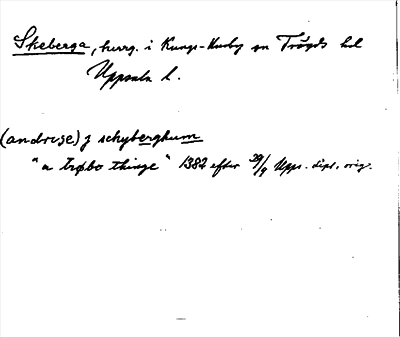 Skeberga, herrg. i Kungs-Husby sn Trögds hd
Uppsala l.
(andrese) j schyberghum
"a trøbo thinge" 1382 efter 29/9 Upps. dipl. orig.